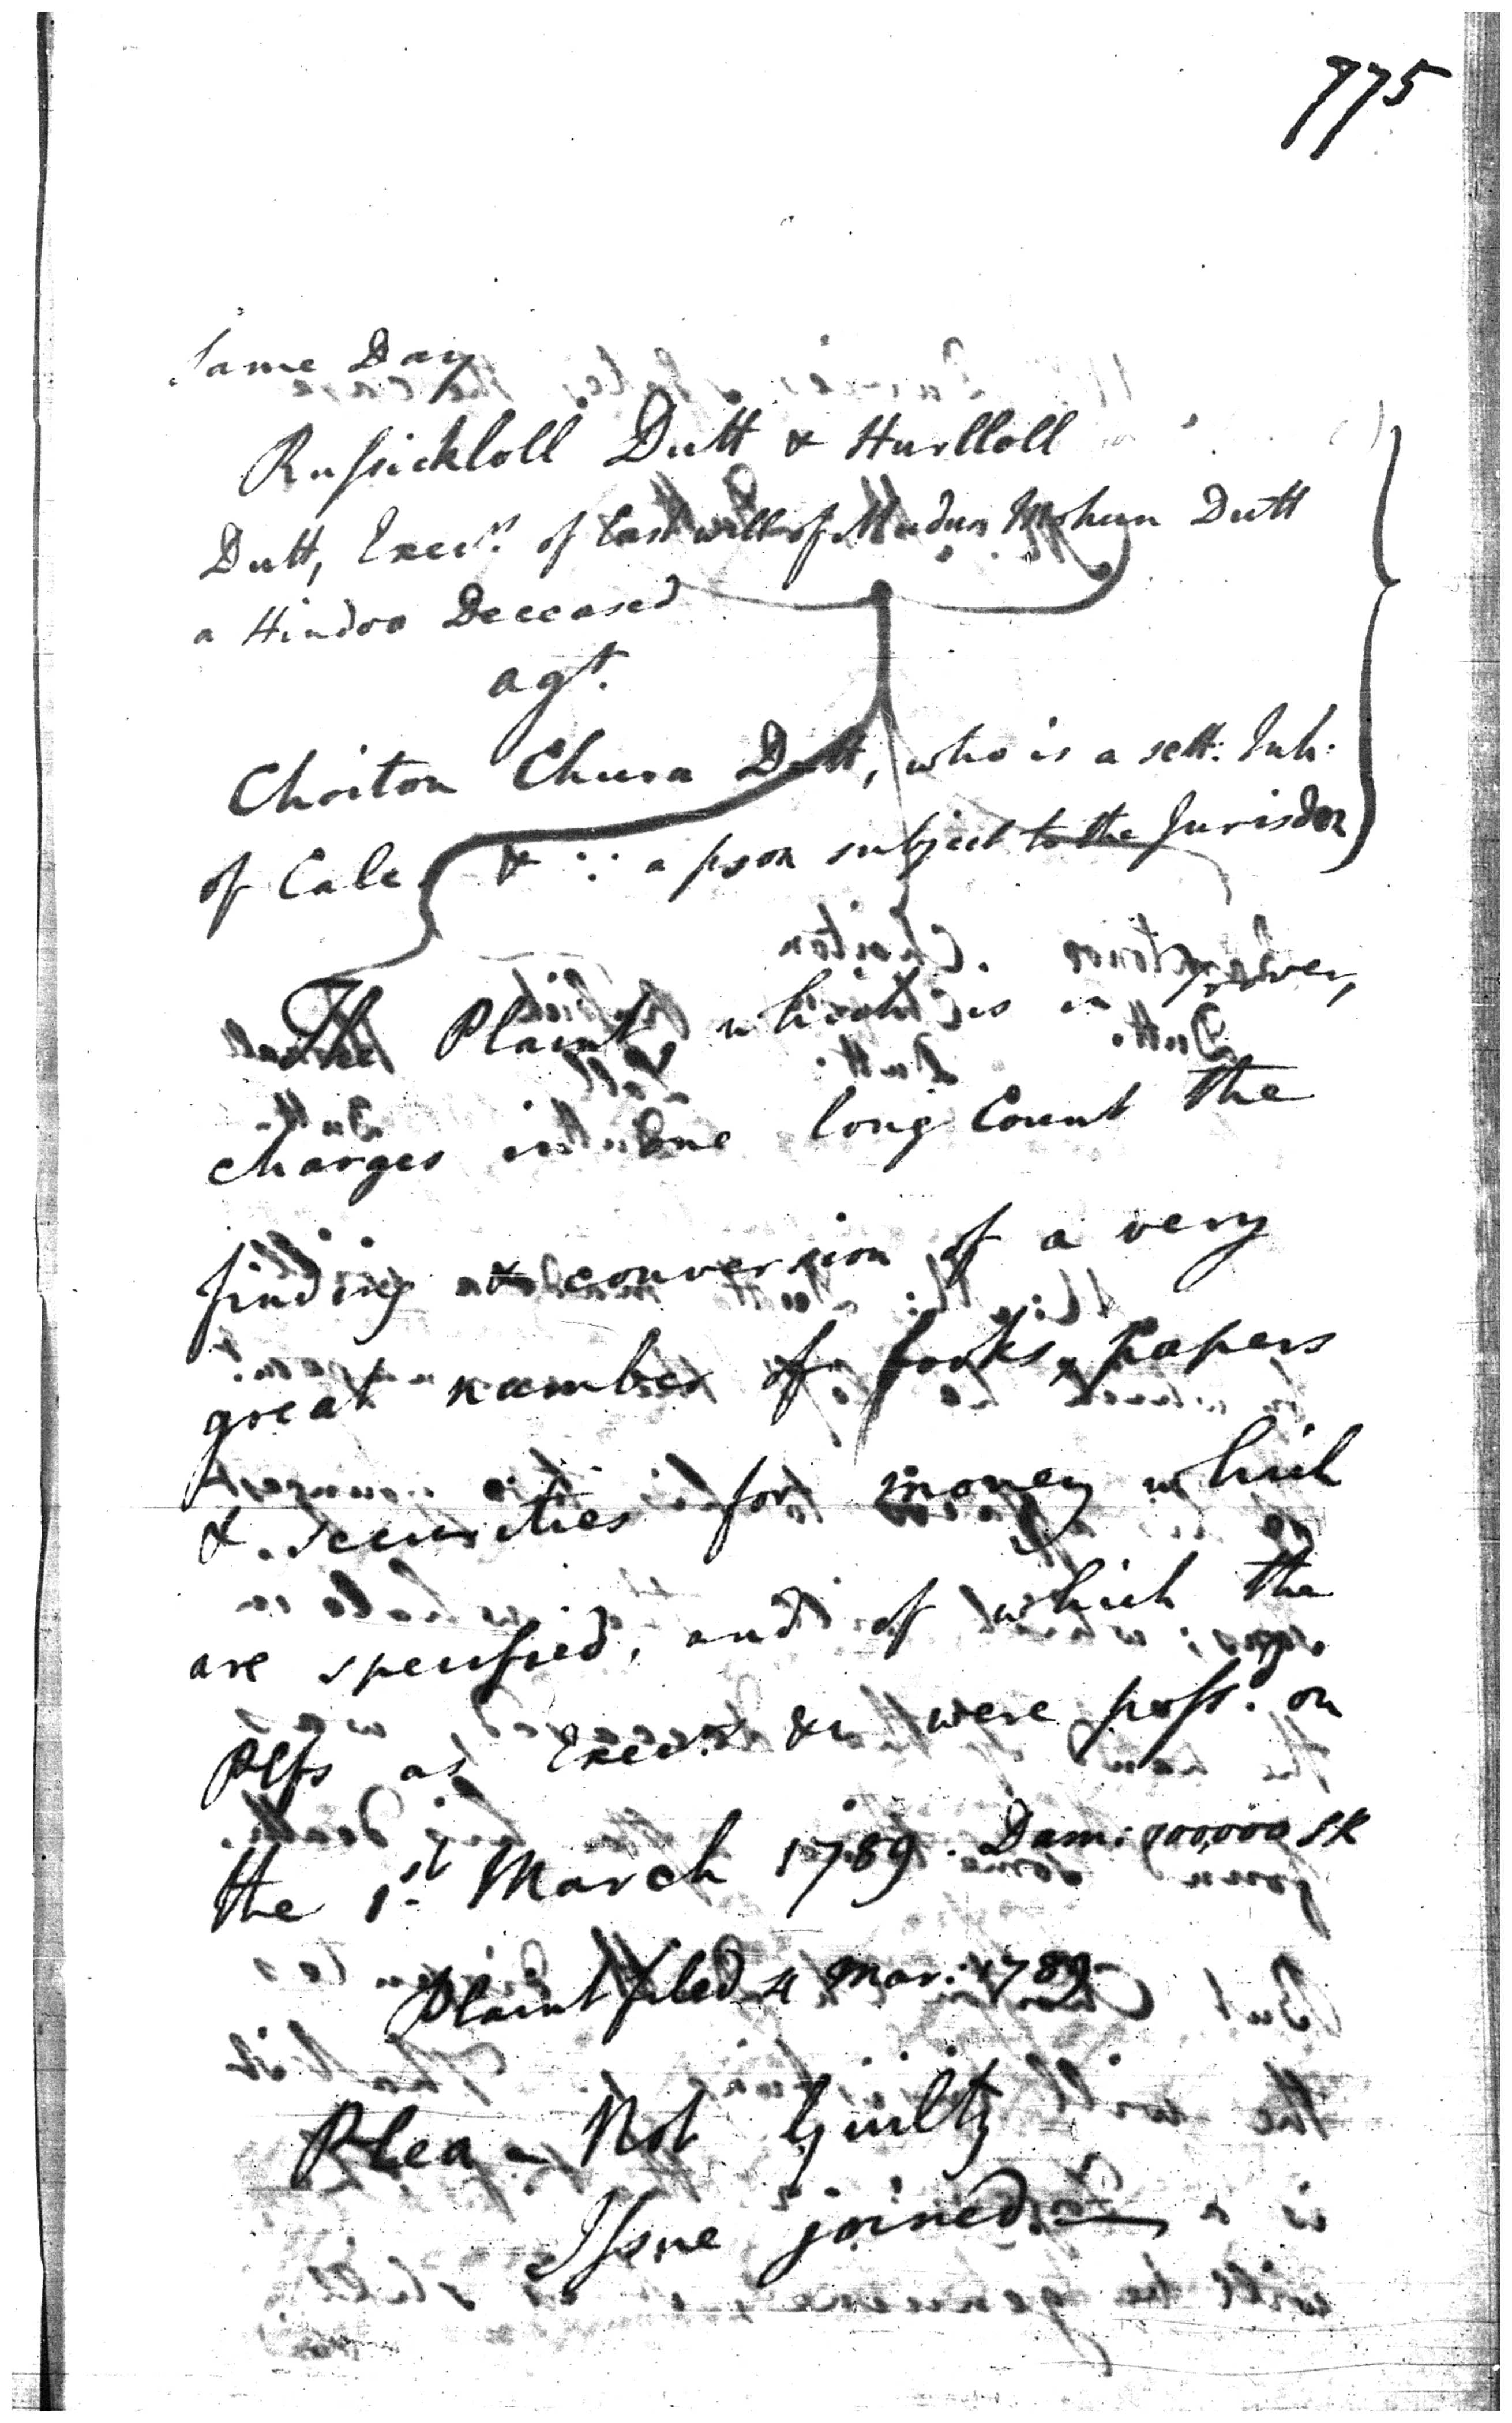 775
Same Day
Russickloll Dutt & Hurlloll
Dutt, Execrs. of last will of Muddun Mohun Dutt
a Hindoo Deceased
agt.
Choiton Churn Dutt, who is a sett: Inh:
of Calc & ∵ a pson subject to the Jurisdon
The Plaint which is in Trover,
charges in one long Count the
finding & conversion of a very
great number of books, papers
& securities for money which
are specified, and of which the
Plfs as Execrs. &c were possd. on
the 1st March 1789. Dam: 900,000 SR
Plaint filed 4 Mar: 1789
Plea - Not Guilty
Issue joined